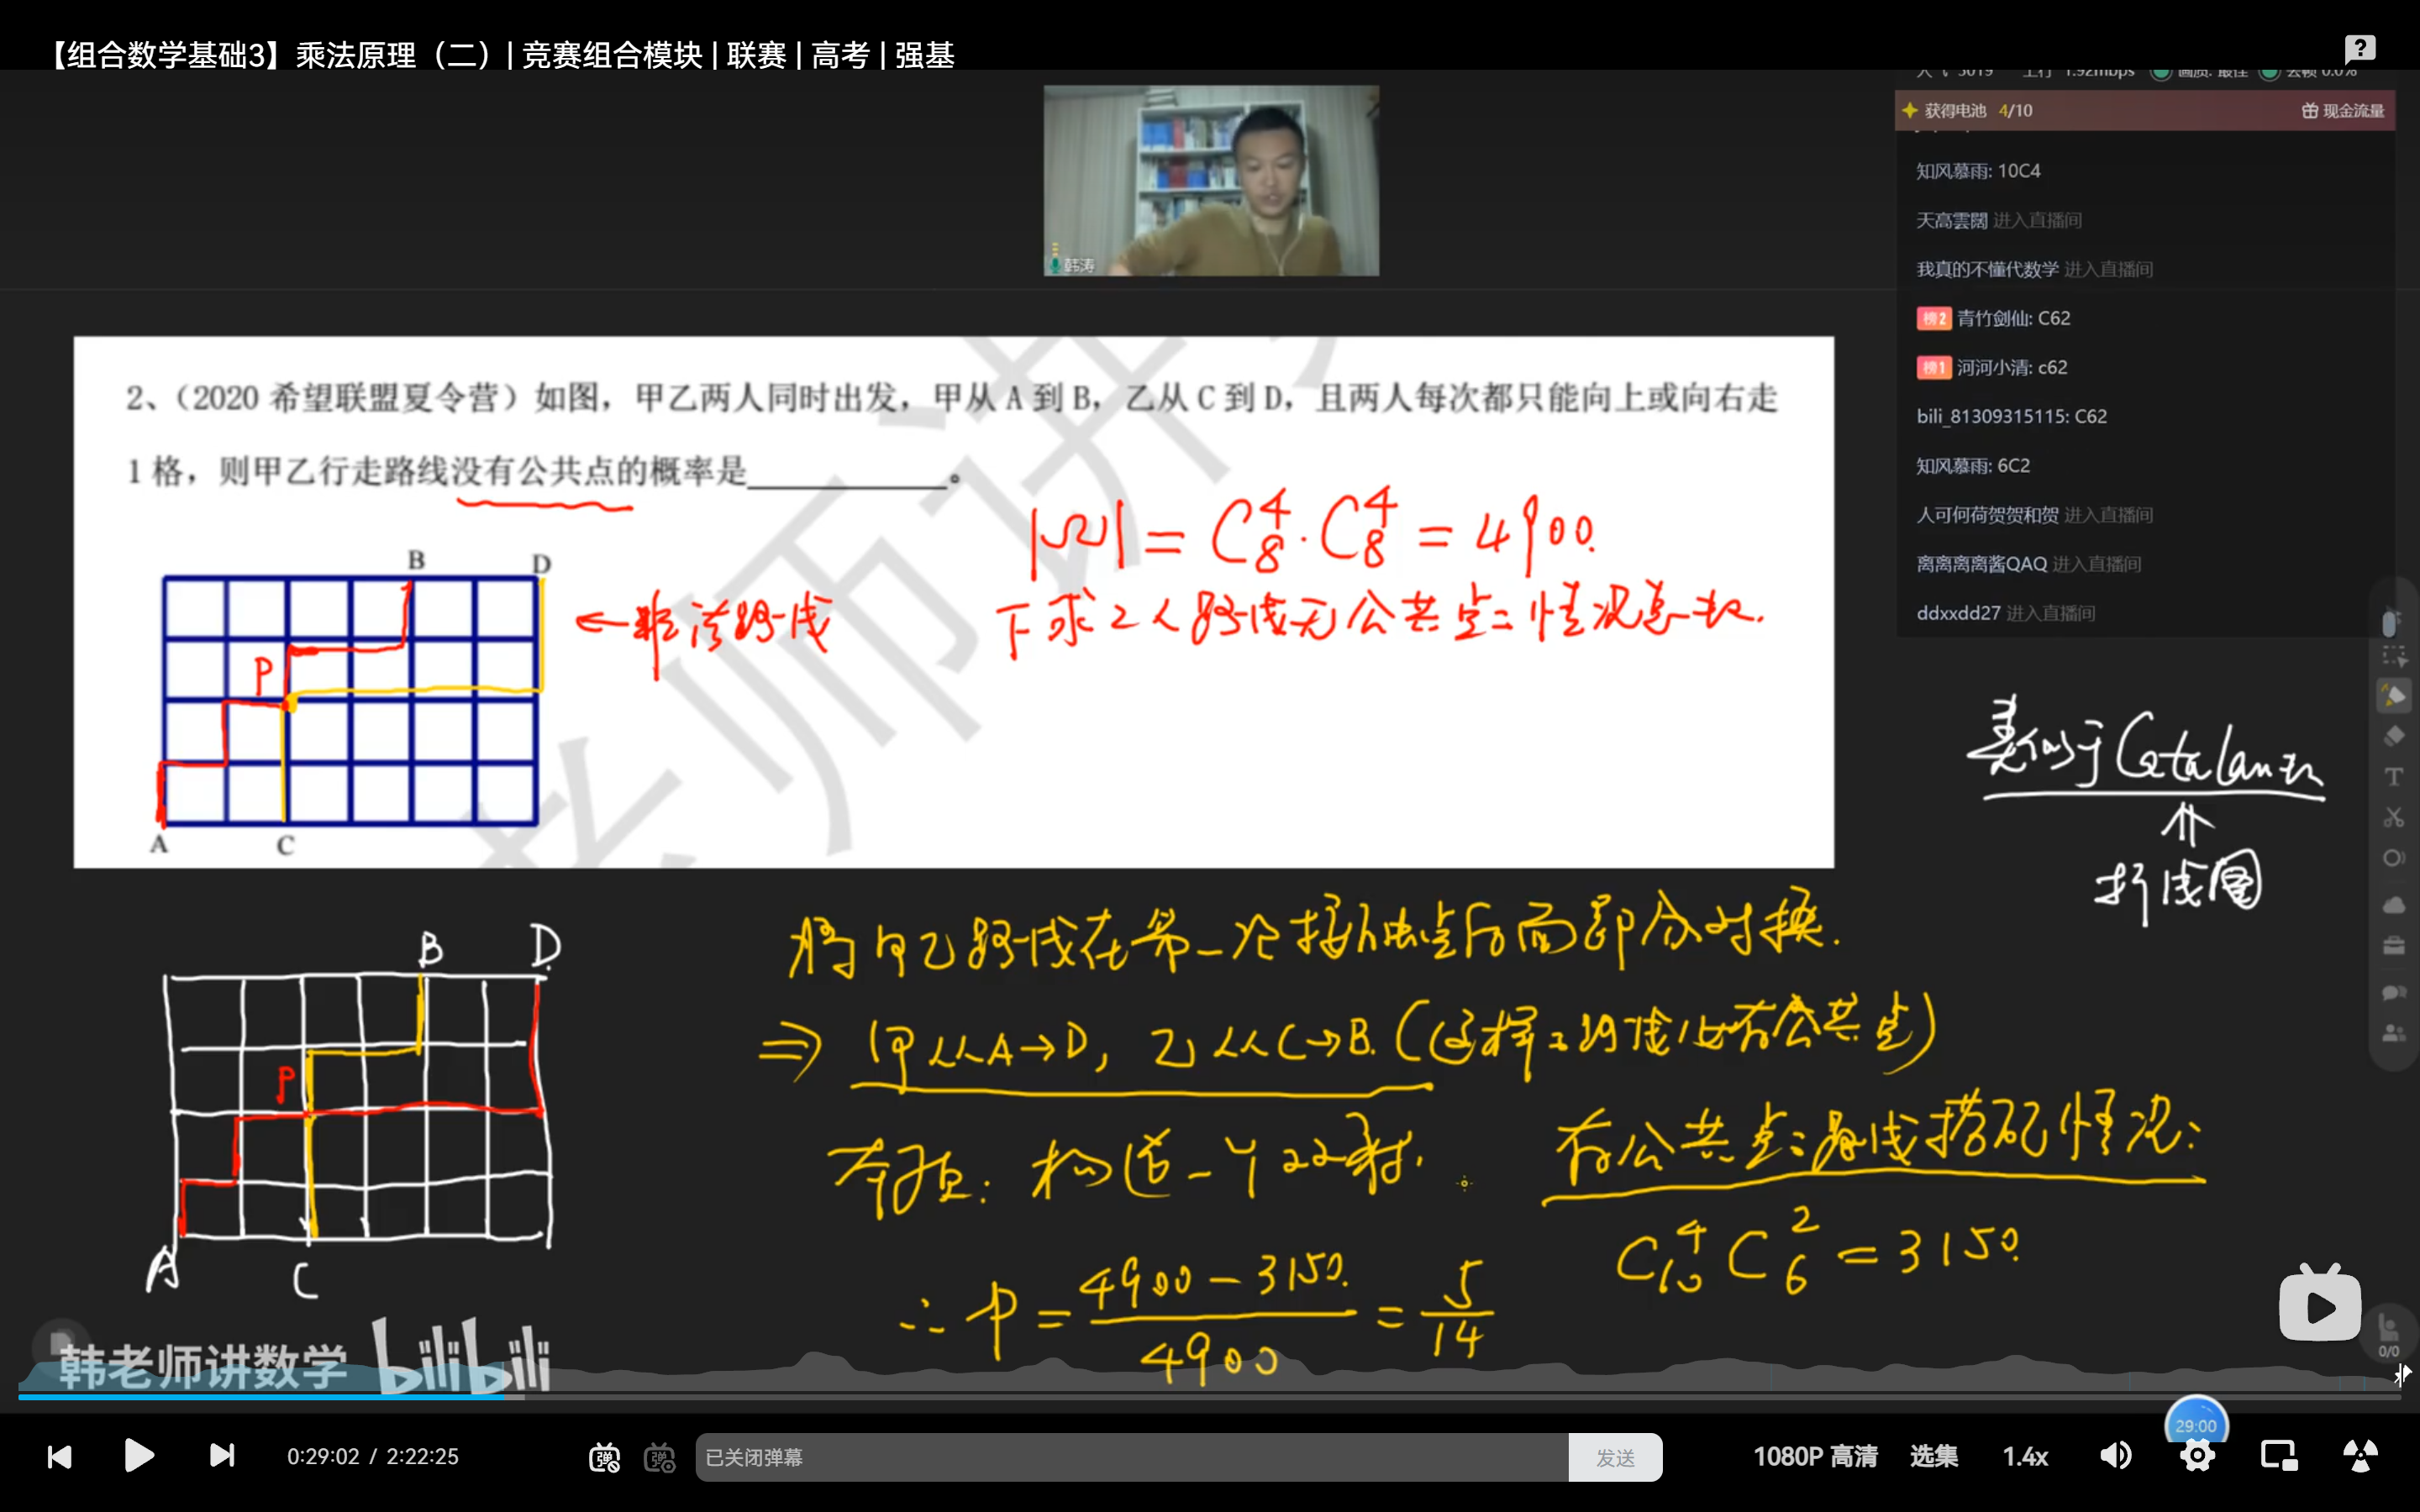 【组合数学基础3】乘法原理（二）| 竞赛组合模块 | 联赛 | 高考 | 强基
获得电池 4/10 现金流量
知风慕雨: 10C4
天高雲闊 进入直播间
我真的不懂代数学 进入直播间
榜2 青竹剑仙: C62
榜1 河河小清: c62
bili_81309315115: C62
知风慕雨: 6C2
人可何荷贺贺和贺 进入直播间
离离离离酱QAQ 进入直播间
ddxxdd27 进入直播间
韩涛
2、（2020 希望联盟夏令营）如图，甲乙两人同时出发，甲从 A 到 B，乙从 C 到 D，且两人每次都只能向上或向右走
1 格，则甲乙行走路线没有公共点的概率是____________。
|Ω| = C₈⁴·C₈⁴ = 4900.
下求2人路线无公共点之情况总数.
B D
←非法路线
P
A C
类似于Catalan数
⇑
折线图
将甲乙路线在第一次接触点后面部分对换.
⇒ 甲从A→D, 乙从C→B. (这样之路线必有公共点)
B D
P
A C
本质: 构造一个双射.
有公共点之路线搭配情况:
C₁₀⁴ C₆² = 3150
∴ P = (4900-3150)/4900 = 5/14
韩老师讲数学 bilibili
0/0
29:00
0:29:02 / 2:22:25
弹 弹
已关闭弹幕
发送
1080P 高清 选集 1.4x